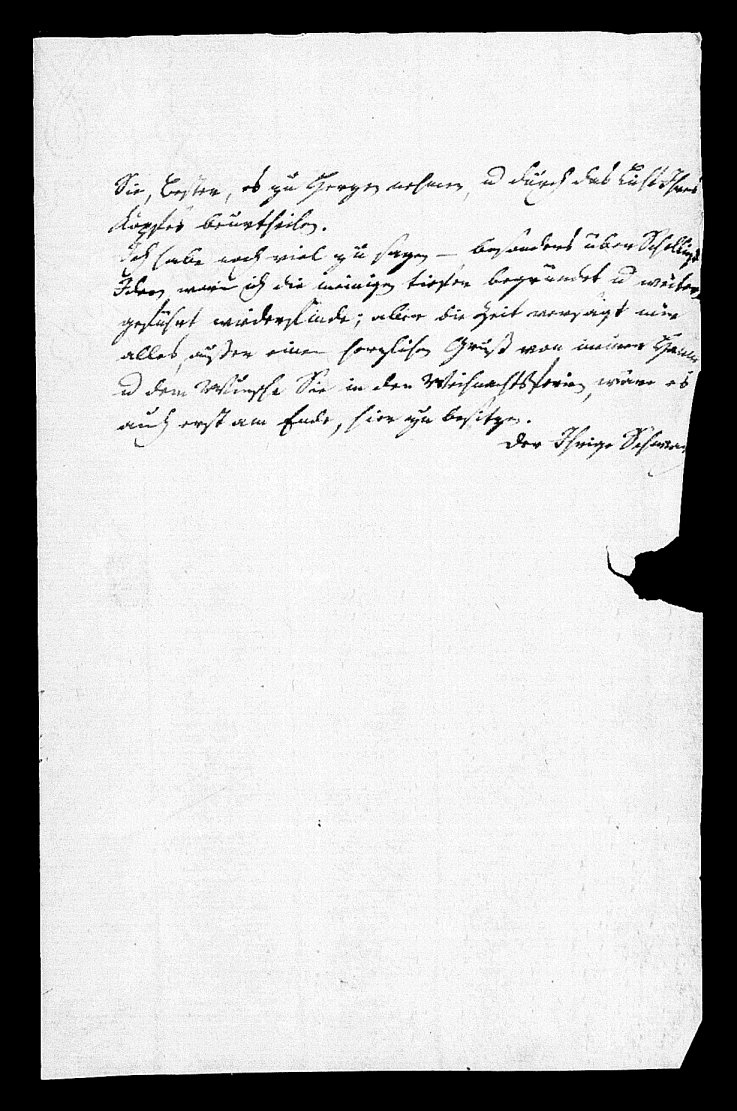 Sie, Bester, es zu Herzen nehmen, u durch das Licht Ihres
Kopfes beurtheilen.
Ich habe noch viel zu sagen – besonders über Schellings
Ideen, worin ich die meinigen tiefer begründet u weiter
geführt wiederfinde; aber die Zeit versagt mir
alles, außer einen herzlichen Gruß von meiner
u dem Wunsche Sie in den Weihnachtsferien, wäre es
auch erst am Ende, hier zu besitzen.
Der Ihrige